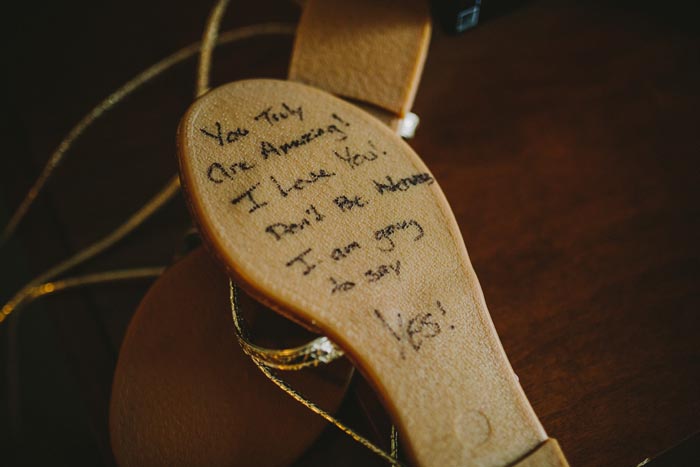 You Truly
Are Amazing!
I Love You!
Don't Be Nervous
I am going
to say
Yes!